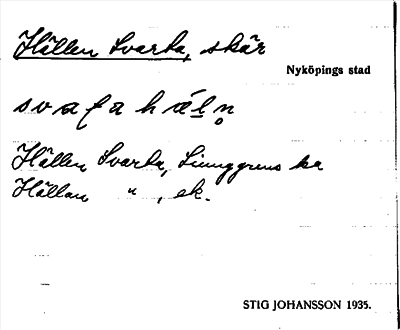 Hällen Svarta, skär
Nyköpings stad
svaṭa häḷn̥
Hällen Svarta, Ljunggrens ka
Hällan " , ek.
STIG JOHANSSON 1935.